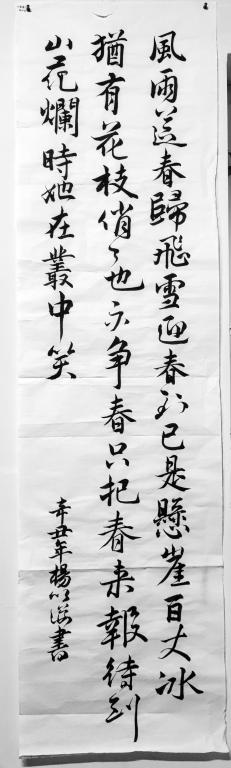 風雨送春歸飛雪迎春到已是懸崖百丈冰
猶有花枝俏々也不争春只把春来報待到
山花爛時她在叢中笑
辛丑年楊書